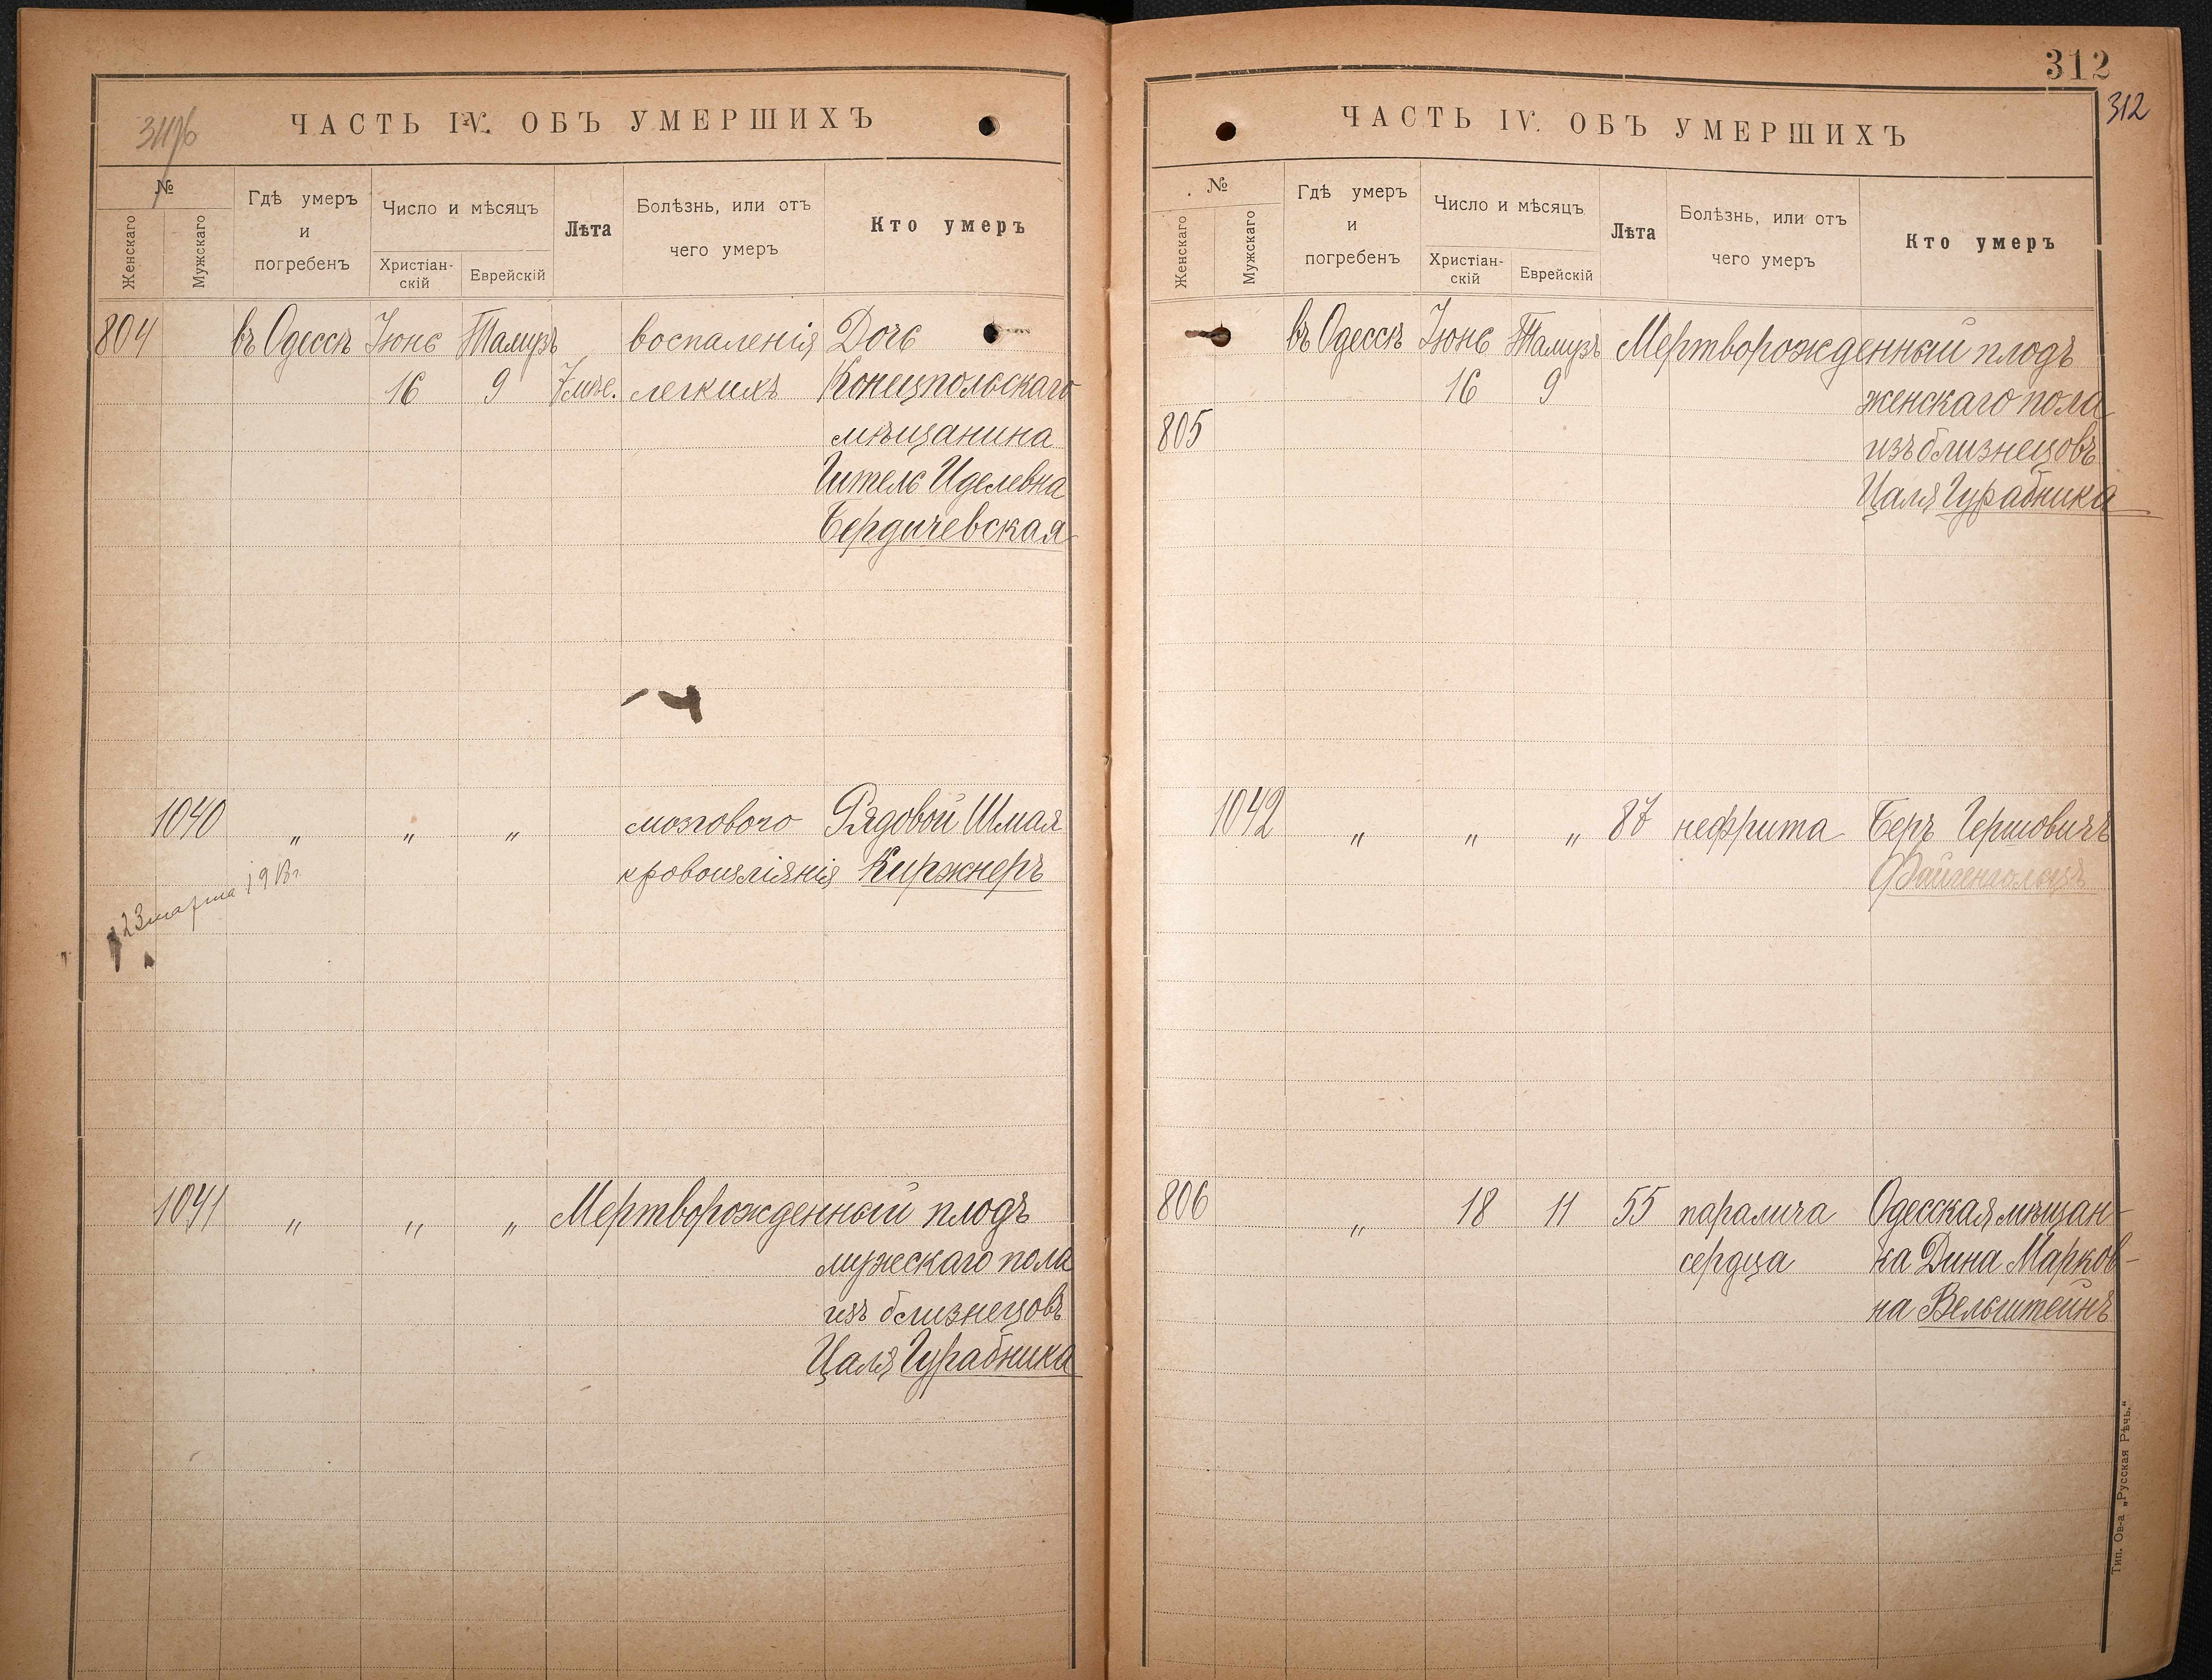 ЧАСТЬ IV. ОБЪ УМЕРШИХЪ
№
Женскаго
Мужскаго
Гдѣ умеръ
и
погребенъ
Число и мѣсяцъ
Христіан-
скій
Еврейскій
Лѣта
Болѣзнь, или отъ
чего умеръ
Кто умеръ
804 въ Одессѣ Іюнь Тамузъ воспаленія Дочь
16 9 7 мѣс. легкихъ Конецпольскаго
мѣщанина
Гитель Иделевна
Бердичевская
1040 „ „ „ мозгового Рядовой Шмая
кровоизліянія Киржнеръ
23 марта 1913 г.
1041 „ „ „ Мертворожденный плодъ
мужескаго пола
изъ близнецовъ
Цаля Гурабника
312
312
ЧАСТЬ IV. ОБЪ УМЕРШИХЪ
№
Женскаго
Мужскаго
Гдѣ умеръ
и
погребенъ
Число и мѣсяцъ
Христіан-
скій
Еврейскій
Лѣта
Болѣзнь, или отъ
чего умеръ
Кто умеръ
въ Одессѣ Іюнь Тамузъ Мертворожденный плодъ
16 9 женскаго пола
805 изъ близнецовъ
Цаля Гурабника
1042 „ „ „ 87 нефрита Беръ Гершовичъ
Файнгольцъ
806 „ 18 11 55 паралича Одесская мѣщан-
сердца ка Дина Марков-
на Вельштейнъ
Тип. Ов-а „Русская Рѣчь.“